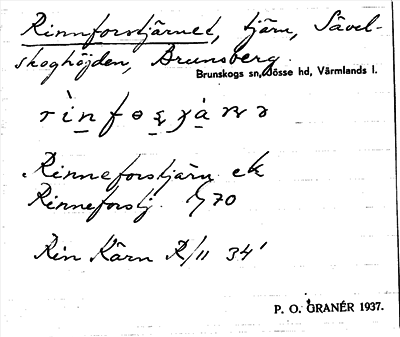 Rinnforstjärnet, tjärn, Sävel-
skoghöjden, Brunsberg.
Brunskogs sn, Jösse hd, Värmlands l.
Rinneforstjärn ek
Rinneforstj. 70
Rin Kärn R/11 34'
P. O. GRANÉR 1937.